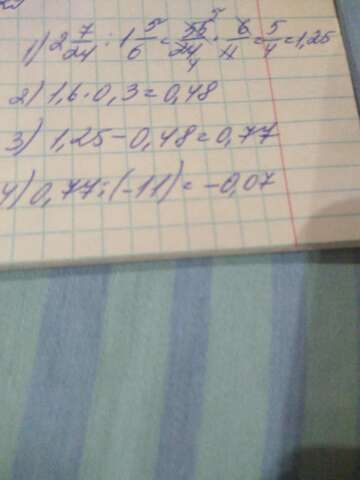 1) 2 7/24 : 1 5/6 = 55/24 · 6/11 = 5/4 = 1,25
2) 1,6 · 0,3 = 0,48
3) 1,25 - 0,48 = 0,77
4) 0,77 : (-11) = -0,07